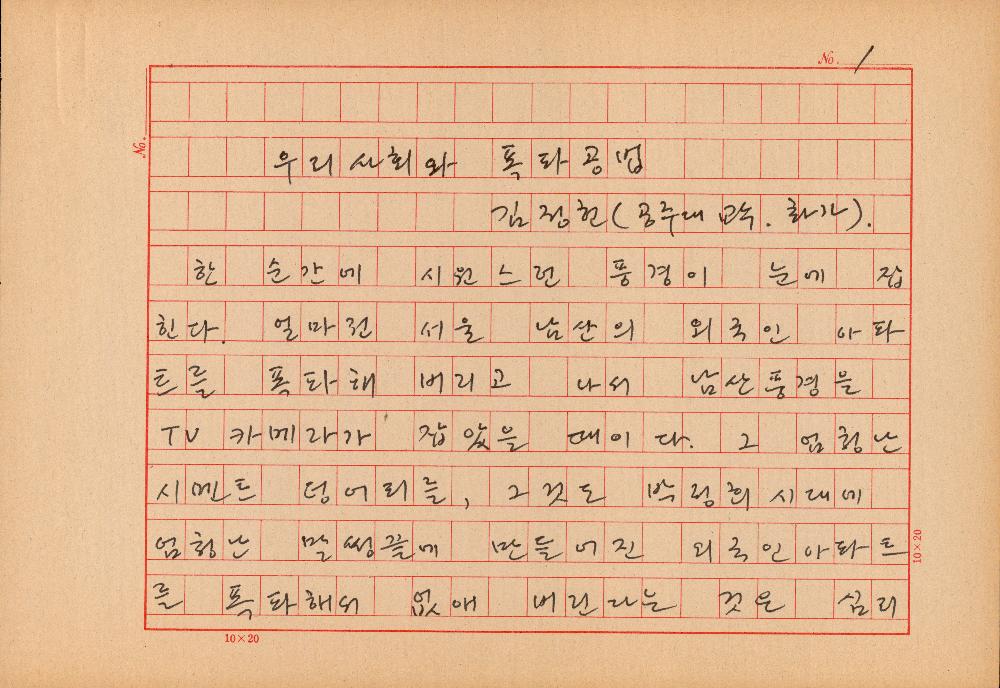 No. 1
No.
우리 사회와 폭파공법
김정헌(공주대 교수. 화가).
한 순간에 시원스런 풍경이 눈에 잡
힌다. 얼마전 서울 남산의 외국인 아파
트를 폭파해 버리고 나서 남산풍경을
TV 카메라가 잡았을 때이다. 그 엄청난
시멘트 덩어리를, 그것도 박정희 시대에
엄청난 말썽끝에 만들어진 외국인아파트
를 폭파해서 없애 버린다는 것은 심리
10×20
10×20